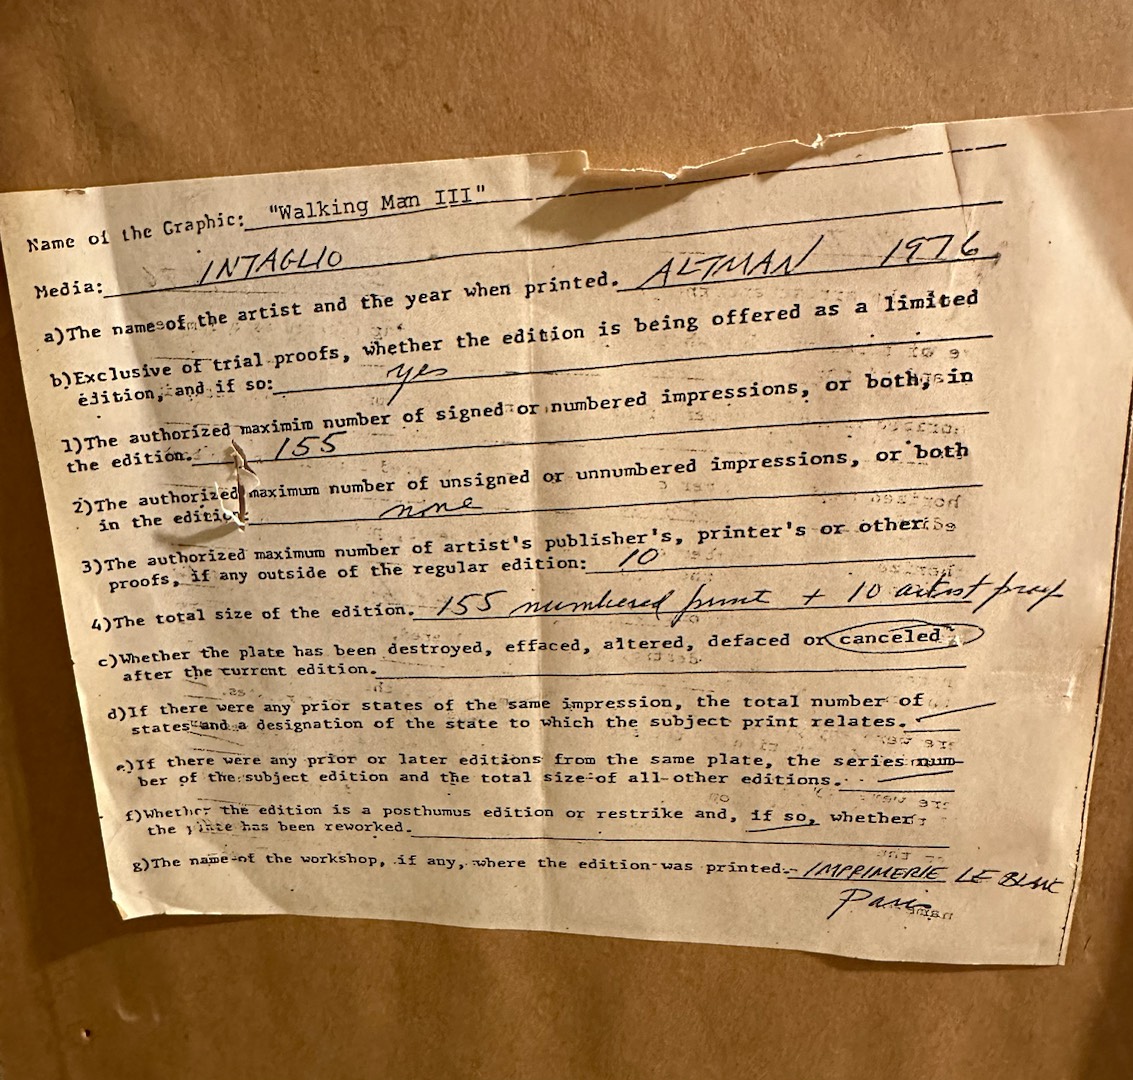 Name of the Graphic: "Walking Man III"
Media: INTAGLIO
a)The name of the artist and the year when printed. ALTMAN 1976
b)Exclusive of trial proofs, whether the edition is being offered as a limited
edition, and if so: yes
1)The authorized maximim number of signed or numbered impressions, or both, in
the edition. 155
2)The authorized maximum number of unsigned or unnumbered impressions, or both
in the edition: none
3)The authorized maximum number of artist's publisher's, printer's or other
proofs, if any outside of the regular edition: 10
4)The total size of the edition. 155 numbered print + 10 artist proof
c)Whether the plate has been destroyed, effaced, altered, defaced or canceled
after the current edition.
d)If there were any prior states of the same impression, the total number of
states and a designation of the state to which the subject print relates.
e)If there were any prior or later editions from the same plate, the series num-
ber of the subject edition and the total size of all other editions.
f)Whether the edition is a posthumus edition or restrike and, if so, whether
the plate has been reworked.
g)The name of the workshop, if any, where the edition was printed. IMPRIMERIE LE BLANC
Paris